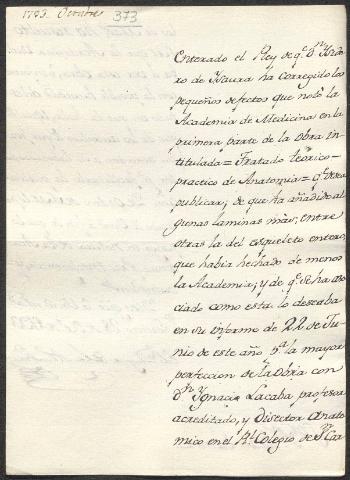 1793. Octubre
373
Enterado el Rey de q.e D.n Isid
ro de Isaura ha corregido los
pequeños defectos que notó la
Academia de Medicina en la
primera parte de la Obra in
titulada = Tratado teórico-
practico de Anatomia = q.e desea
publicar; de que ha añadido al
gunas laminas más, entre
otras la del esqueleto entero,
que había hechado de menos
la Academia; y de q.e se ha aso
ciado como esta lo deseaba
en su informe de 22 de Ju
nio de este año p.a la mayor
perfeccion de la Obra con
D.n Ygnacio Lacaba profesor
acreditado, y Director Anato
mico en el R.l Colegio de S.n Car